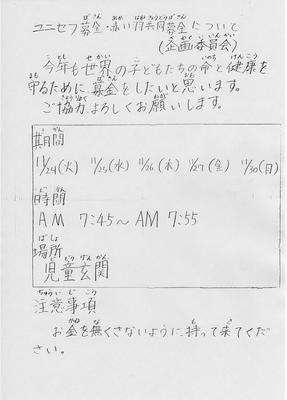 ユニセフ募金・赤い羽共同募金について
(企画委員会)
今年も世界の子どもたちの命と健康を
守るために募金をしたいと思います。
ご協力よろしくお願いします。
期間
11/24(火) 11/25(水) 11/26(木) 11/27(金) 11/30(月)
時間
AM 7:45~AM 7:55
場所
児童玄関
注意事項
お金を無くさないように、持って来てくだ
さい。